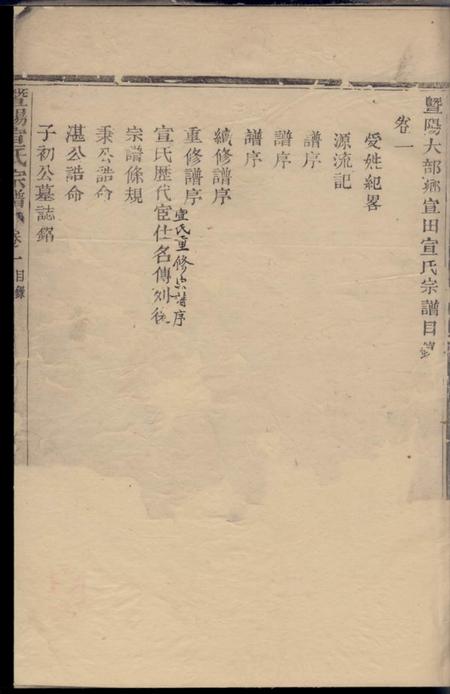 暨陽大部鄉宣田宣氏宗譜目錄
卷一
愛姓紀畧
源流記
譜序
譜序
譜序
續修譜序
重修譜序
宣氏重修宗譜序
宣氏歷代宦仕名傳列後
宗譜條規
秉公誥命
湛公誥命
子初公墓誌銘
暨陽宣氏宗譜
卷一目錄